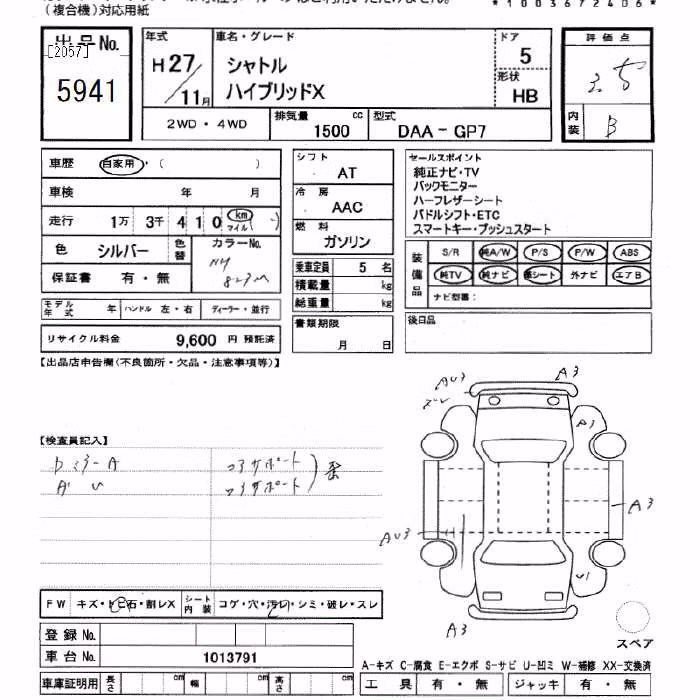 (複合機)対応用紙
*1003672406*
出品No.
[2057]
5941
年式
H27/11月
車名・グレード
シャトル
ハイブリッドX
ドア
5
形状
HB
評価点
3.5
内装
B
2WD・4WD
排気量
1500 cc
型式
DAA-GP7
車歴 自家用・( )
車検 年 月
走行 1万 3千 410 km マイル( )
色 シルバー
色替
カラーNo.
保証書 有・無
モデル年式 年 ハンドル 左・右 ディーラー・並行
リサイクル料金 9,600 円 預託済
シフト
AT
冷房
AAC
燃料
ガソリン
乗車定員 5 名
積載量 kg
総重量 kg
書類期限
月 日
セールスポイント
純正ナビ・TV
バックモニター
ハーフレザーシート
パドルシフト・ETC
スマートキー・プッシュスタート
装備品
S/R 純A/W P/S P/W ABS
純TV 純ナビ 革シート 外ナビ エアB
ナビ型番:
後日品
【出品店申告欄(不良箇所・欠品・注意事項等)】
【検査員記入】
コアサポート
コアサポート
歪
A3
AU3
ズレ
A1
A3
AU3
U1
A3
スペア
FW キズ・トビ石・割レX
シート内装 コゲ・穴・汚レ・シミ・破レ・スレ
登録No.
車台No. 1013791
車庫証明用 長さ cm 幅 cm 高さ cm
A-キズ C-腐食 E-エクボ S-サビ U-凹ミ W-補修 XX-交換済
工具 有・無 ジャッキ 有・無